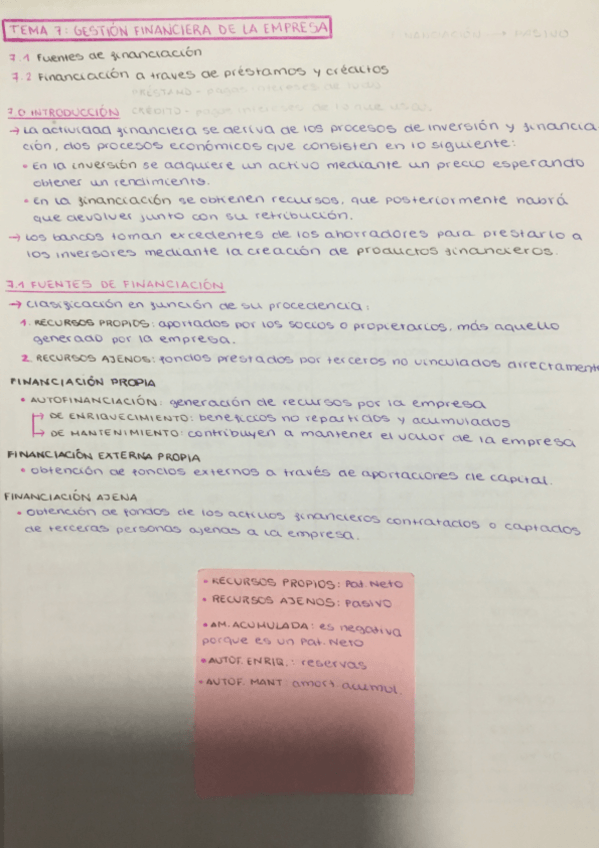 TEMA 7: GESTIÓN FINANCIERA DE LA EMPRESA
FINANCIACIÓN → PASIVO
7.1 Fuentes de financiación
7.2 Financiación a traves de préstamos y créditos
PRÉSTAMO - pagas intereses de todo
CRÉDITO - pagas intereses de lo que usas.
7.0 INTRODUCCIÓN
→ La actividad financiera se deriva de los procesos de inversión y financia
ción, dos procesos económicos que consisten en lo siguiente:
• En la inversión se adquiere un activo mediante un precio esperando
obtener un rendimiento.
• En la financiación se obtienen recursos, que posteriormente habrá
que devolver junto con su retribución.
→ Los bancos toman excedentes de los ahorradores para prestarlo a
los inversores mediante la creación de productos financieros.
7.1 FUENTES DE FINANCIACIÓN
→ Clasificación en función de su procedencia:
1. RECURSOS PROPIOS: aportados por los socios o propietarios, más aquello
generado por la empresa.
2. RECURSOS AJENOS: fondos prestados por terceros no vinculados directamente
FINANCIACIÓN PROPIA
• AUTOFINANCIACIÓN: generación de recursos por la empresa
↳ DE ENRIQUECIMIENTO: beneficios no repartidos y acumulados
↳ DE MANTENIMIENTO: contribuyen a mantener el valor de la empresa
FINANCIACIÓN EXTERNA PROPIA
• obtención de fondos externos a través de aportaciones de capital.
FINANCIACIÓN AJENA
• obtención de fondos de los activos financieros contratados o captados
de terceras personas ajenas a la empresa.
• RECURSOS PROPIOS: Pat. Neto
• RECURSOS AJENOS: Pasivo
• AM. ACUMULADA: es negativa
porque es un Pat. Neto
• AUTOF. ENRIQ.: reservas
• AUTOF. MANT: amort. acumul.